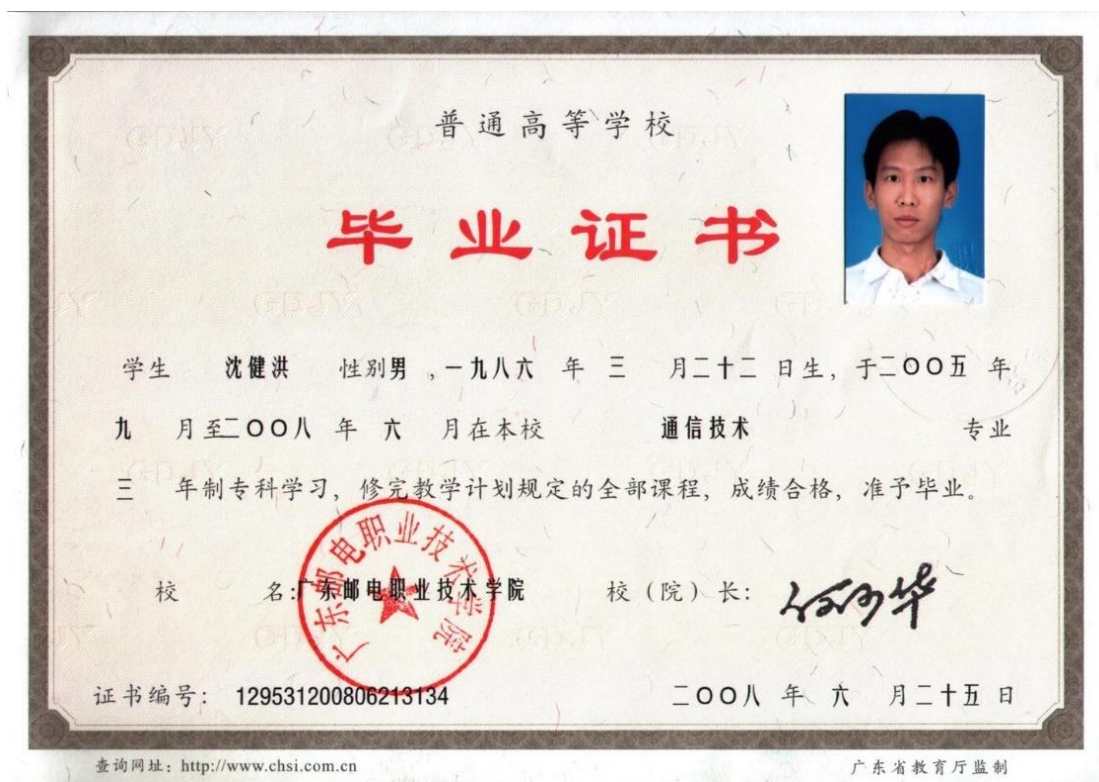 普通高等学校
毕业证书
学生 沈健洪 性别男,一九八六 年 三 月二十二 日生,于二〇〇五 年
九 月至二〇〇八 年 六 月在本校 通信技术 专业
三 年制专科学习,修完教学计划规定的全部课程,成绩合格,准予毕业。
广东邮电职业技术学院
校 名:广东邮电职业技术学院 校(院)长:
证书编号: 129531200806213134 二〇〇八 年 六 月二十五 日
查询网址:http://www.chsi.com.cn 广东省教育厅监制